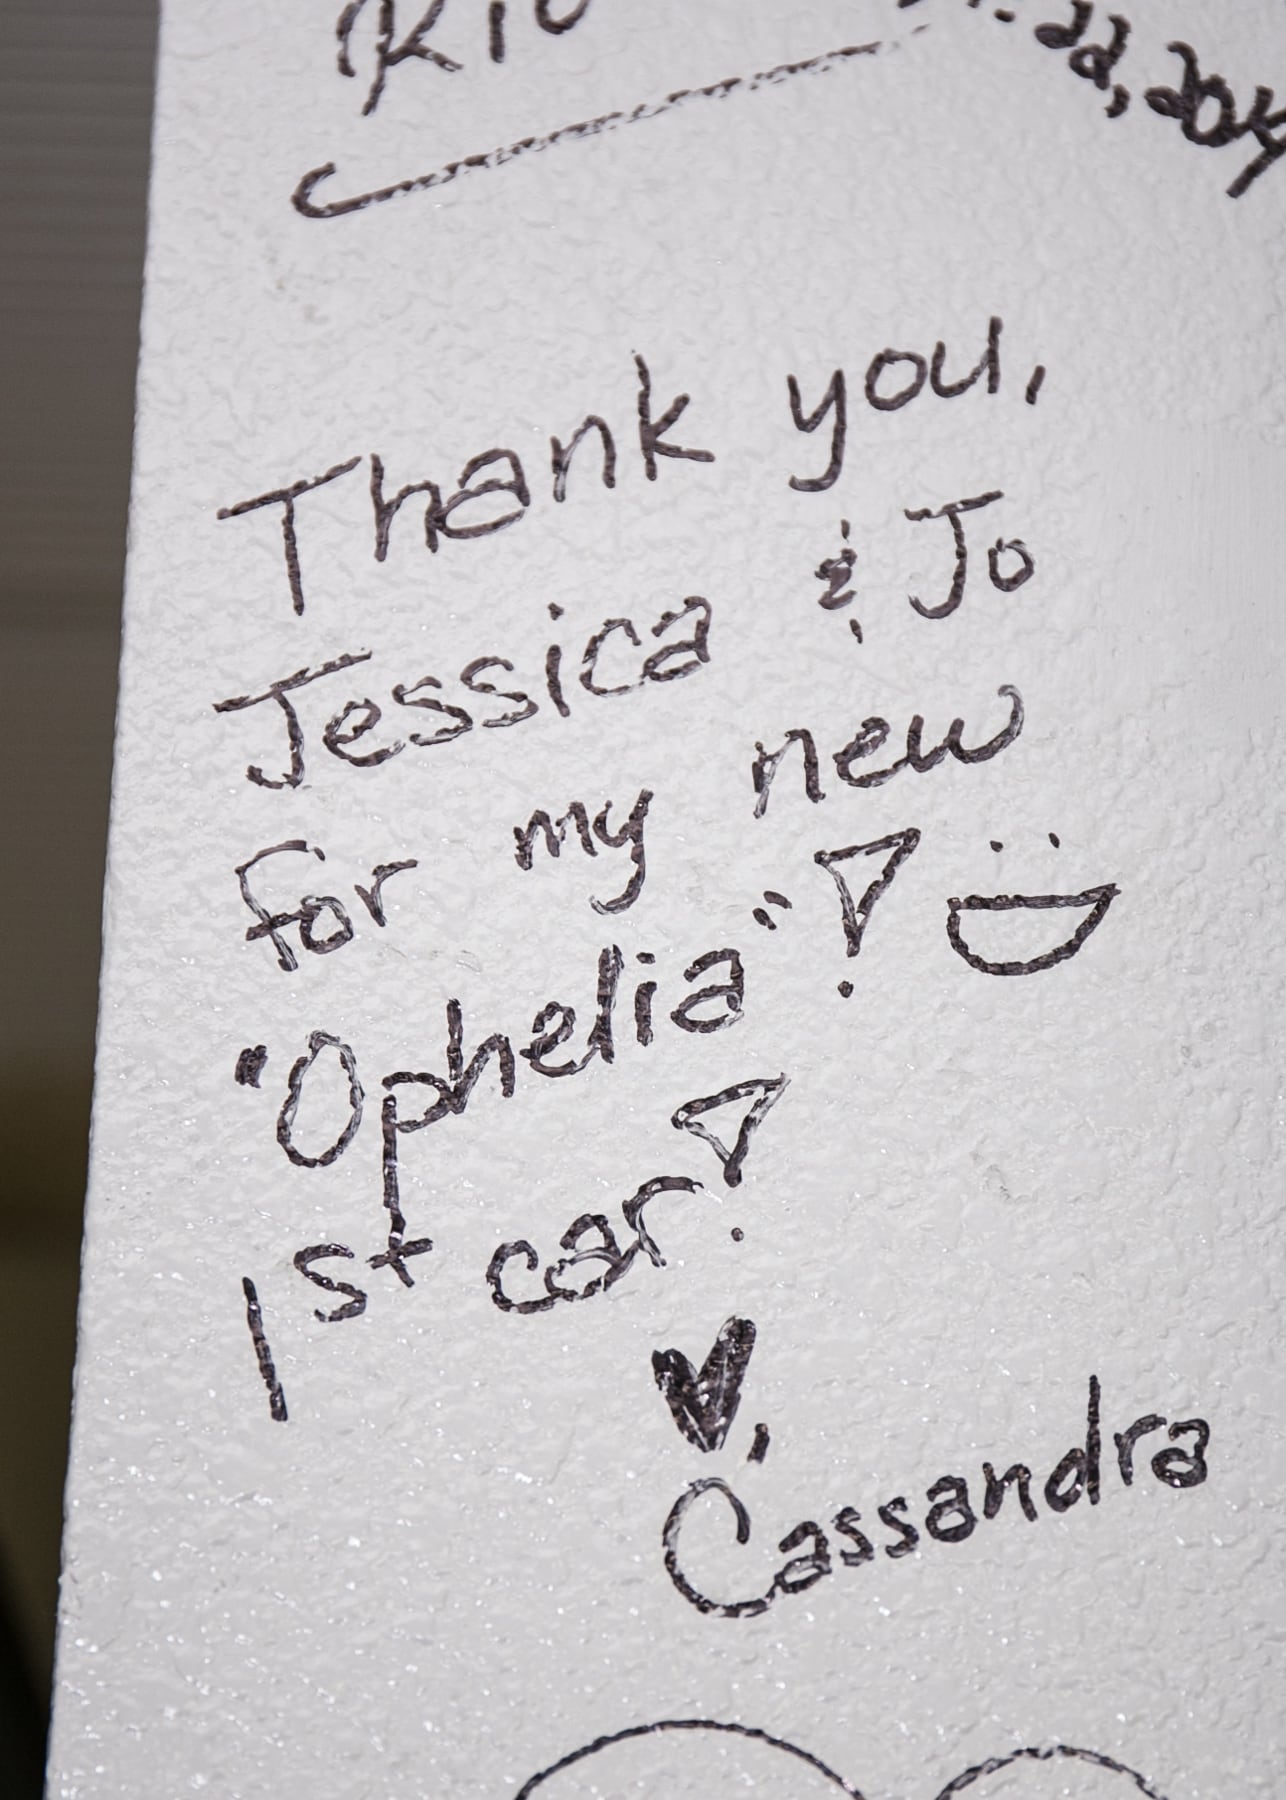 Thank you,
Jessica & Jo
for my new
"Ophelia"! :D
1st car!
♥,
Cassandra